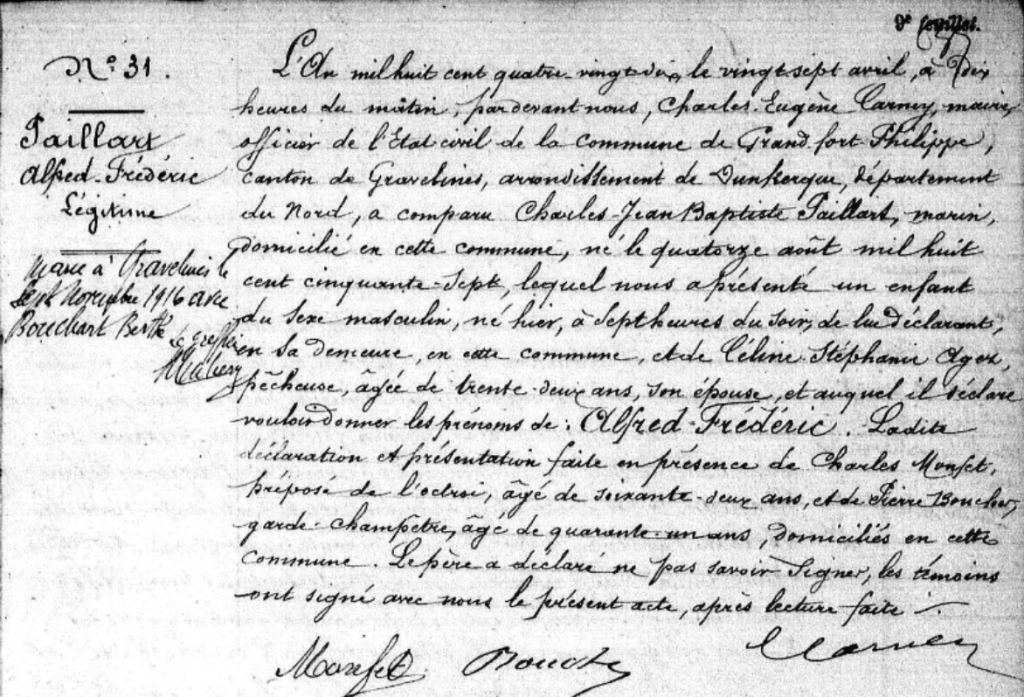 9e feuillet.
N° 31.
Taillart
Alfred-Frédéric
Légitime
Marié à Gravelines le
Novembre 1916 avec
Bouchart Berthe
Le greffier
L'An mil huit cent quatre-vingt-dix, le vingt sept avril, à dix
heures du matin, pardevant nous, Charles-Eugène Carney, maire,
officier de l'Etat civil de la commune de Grand-fort-Philippe,
canton de Gravelines, arrondissement de Dunkerque, département
du Nord, a comparu Charles-Jean Baptiste Taillart, marin,
domicilié en cette commune, né le quatorze août mil huit
cent cinquante-sept, lequel nous a présenté un enfant
du sexe masculin, né hier, à sept heures du soir, de lui déclarant,
en sa demeure, en cette commune, et de Céline-Stéphanie Agez,
pêcheuse, âgée de trente-deux ans, son épouse, et auquel il déclare
vouloir donner les prénoms de : Alfred-Frédéric. Ladite
déclaration et présentation faite en présence de Charles Monfet,
préposé de l'octroi, âgé de soixante-deux ans, et de Pierre Bouchez,
garde-champêtre, âgé de quarante-un ans, domiciliés en cette
commune. Le père a déclaré ne pas savoir signer, les témoins
ont signé avec nous le présent acte, après lecture faite.
Monfet Bouchez CCarney